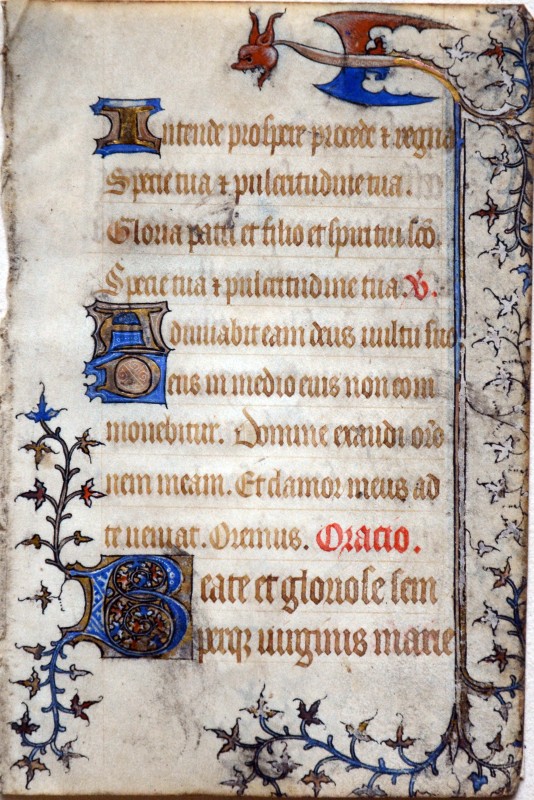 Intende prospere procede ⁊ regna
Specie tua ⁊ pulcritudine tua.
Gloria patri et filio et spiritui sco.
Specie tua ⁊ pulcritudine tua. V.
Adiuuabit eam deus uultu suo
Deus in medio eius non com
mouebitur. Domine exaudi oro
nem meam. Et clamor meus ad
te ueniat. Oremus. Oracio.
Beate et gloriose sem
perqꝫ uirginis marie